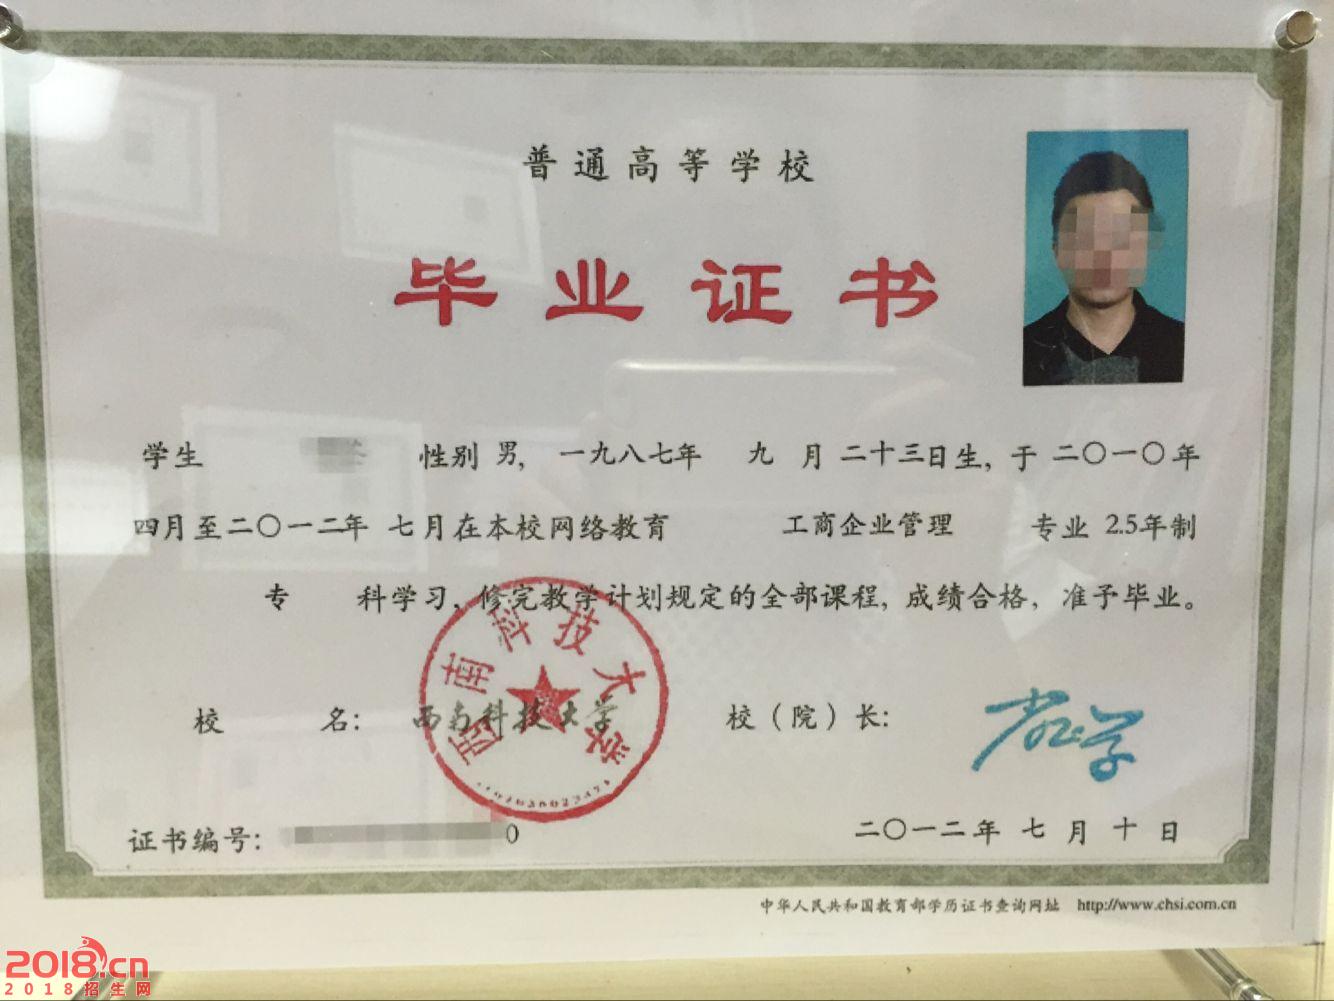 普通高等学校
毕业证书
学生 性别 男， 一九八七年 九 月 二十三日生，于 二〇一〇年
四月至二〇一二年 七月在本校网络教育 工商企业管理 专业 2.5年制
专 科学习，修完教学计划规定的全部课程，成绩合格，准予毕业。
西南科技大学
校 名： 西南科技大学 校（院）长：
证书编号： 0 二〇一二年 七 月 十 日
中华人民共和国教育部学历证书查询网址 http://www.chsi.com.cn
2018.cn
2018招生网